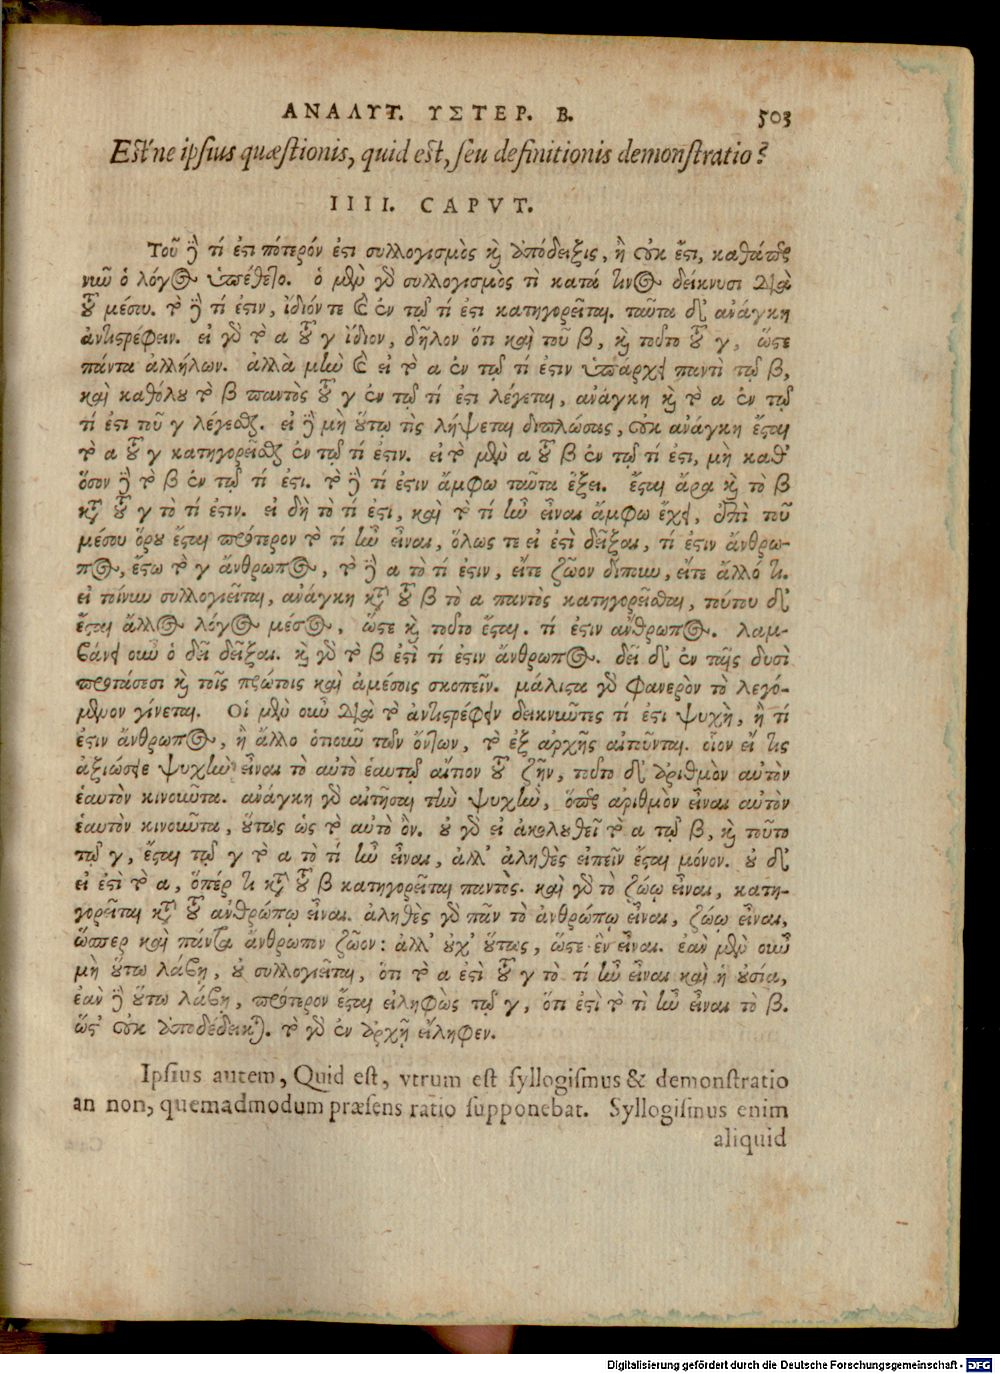 ΑΝΑΛΥΤ. ΥΣΤΕΡ. Β. 503
Est'ne ipsius quæstionis, quid est, seu definitionis demonstratio?
IIII. CAPVT.
Τοῦ δὲ τί ἐστι πότερόν ἐστι συλλογισμὸς καὶ ἀπόδειξις, ἢ οὐκ ἔστι, καθάπερ
νιῦ ὁ λόγος ὑπέθετο. ὁ μὲν γὰρ συλλογισμὸς τὶ κατά τινος δείκνυσι διὰ
τοῦ μέσου. τὸ δὲ τί ἐστιν, ἴδιόν τε καὶ ἐν τῷ τί ἐστι κατηγορεῖται. ταῦτα δ' ἀνάγκη
ἀντιστρέφειν. εἰ γὰρ τὸ α τοῦ γ ἴδιον, δῆλον ὅτι καὶ τοῦ β, καὶ τοῦτο τοῦ γ, ὥστε
πάντα ἀλλήλων. ἀλλὰ μὴν καὶ εἰ τὸ α ἐν τῷ τί ἐστιν ὑπάρχει παντὶ τῷ β,
καὶ καθόλου τὸ β παντὸς τοῦ γ ἐν τῷ τί ἐστι λέγεται, ἀνάγκη καὶ τὸ α ἐν τῷ
τί ἐστι τοῦ γ λέγεσθαι. εἰ δὲ μὴ οὕτω τὶς λήψεται διπλώσας, οὐκ ἀνάγκη ἔσται
τὸ α τοῦ γ κατηγορεῖσθαι ἐν τῷ τί ἐστιν. εἰ τὸ μὲν α τοῦ β ἐν τῷ τί ἐστι, μὴ καθ'
ὅσον δὲ τὸ β ἐν τῷ τί ἐστι. τὸ δὲ τί ἐστιν ἄμφω ταῦτα ἕξει. ἔσται ἄρα καὶ τὸ β
κατὰ τοῦ γ τὸ τί ἐστιν. εἰ δὴ τὸ τί ἐστι, καὶ τὸ τί ἦν εἶναι ἄμφω ἔχει, ἐπὶ τοῦ
μέσου ὅρου ἔσται πρότερον τὸ τί ἦν εἶναι, ὅλως τε εἰ ἐστὶ δεῖξαι, τί ἐστιν ἄνθρω-
πος, ἔστω τὸ γ ἄνθρωπος, τὸ δὲ α τὸ τί ἐστιν, εἴτε ζῶον δίπουν, εἴτε ἄλλό τι.
εἰ τοίνυν συλλογιεῖται, ἀνάγκη κατὰ τοῦ β τὸ α παντὸς κατηγορεῖσθαι, τούτου δ'
ἔσται ἄλλος λόγος μέσος, ὥστε καὶ τοῦτο ἔσται. τί ἐστιν ἄνθρωπος. λαμ-
βάνει οὖν ὁ δεῖ δεῖξαι. καὶ γὰρ τὸ β ἐστὶ τί ἐστιν ἄνθρωπος. δεῖ δ' ἐν ταῖς δυσὶ
προτάσεσι καὶ τοῖς πρώτοις καὶ ἀμέσοις σκοπεῖν. μάλιστα γὰρ φανερὸν τὸ λεγό-
μενον γίνεται. Οἱ μὲν οὖν διὰ τὸ ἀντιστρέφειν δεικνύντες τί ἐστι ψυχὴ, ἢ τί
ἐστιν ἄνθρωπος, ἢ ἄλλο ὁτιοῦν τῶν ὄντων, τὸ ἐξ ἀρχῆς αἰτοῦνται. οἷον εἴ τις
ἀξιώσειε ψυχὴν εἶναι τὸ αὐτὸ ἑαυτῷ αἴτιον τοῦ ζῆν, τοῦτο δ' ἀριθμὸν αὐτὸν
ἑαυτὸν κινοῦντα. ἀνάγκη γὰρ αἰτῆσαι τὴν ψυχὴν, ὅπερ ἀριθμὸν εἶναι αὐτὸν
ἑαυτὸν κινοῦντα, οὕτως ὡς τὸ αὐτὸ ὄν. οὐ γὰρ εἰ ἀκολουθεῖ τὸ α τῷ β, καὶ τοῦτο
τῷ γ, ἔσται τῷ γ τὸ α τὸ τί ἦν εἶναι, ἀλλ' ἀληθὲς εἰπεῖν ἔσται μόνον. οὐ δ'
εἰ ἐστὶ τὸ α, ὅπέρ τι κατὰ τοῦ β κατηγορεῖται παντὸς. καὶ γὰρ τὸ ζώῳ εἶναι, κατη-
γορεῖται κατὰ τοῦ ἀνθρώπῳ εἶναι. ἀληθὲς γὰρ πᾶν τὸ ἀνθρώπῳ εἶναι, ζώῳ εἶναι,
ὥσπερ καὶ πάντα ἄνθρωπον ζῶον: ἀλλ' οὐχ' οὕτως, ὥστε ἓν εἶναι. ἐὰν μὲν οὖν
μὴ οὕτω λάβῃ, οὐ συλλογιεῖται, ὅτι τὸ α ἐστὶ τοῦ γ τὸ τί ἦν εἶναι καὶ ἡ οὐσία,
ἐὰν δὲ οὕτω λάβῃ, πρότερον ἔσται εἰληφὼς τῷ γ, ὅτι ἐστὶ τὸ τὶ ἦν εἶναι τὸ β.
ὥστ' οὐκ ἀποδέδεικται. τὸ γὰρ ἐν ἀρχῇ εἴληφεν.
Ipsius autem, Quid est, vtrum est syllogismus & demonstratio
an non, quemadmodum præsens ratio supponebat. Syllogismus enim
aliquid
Digitalisierung gefördert durch die Deutsche Forschungsgemeinschaft - DFG